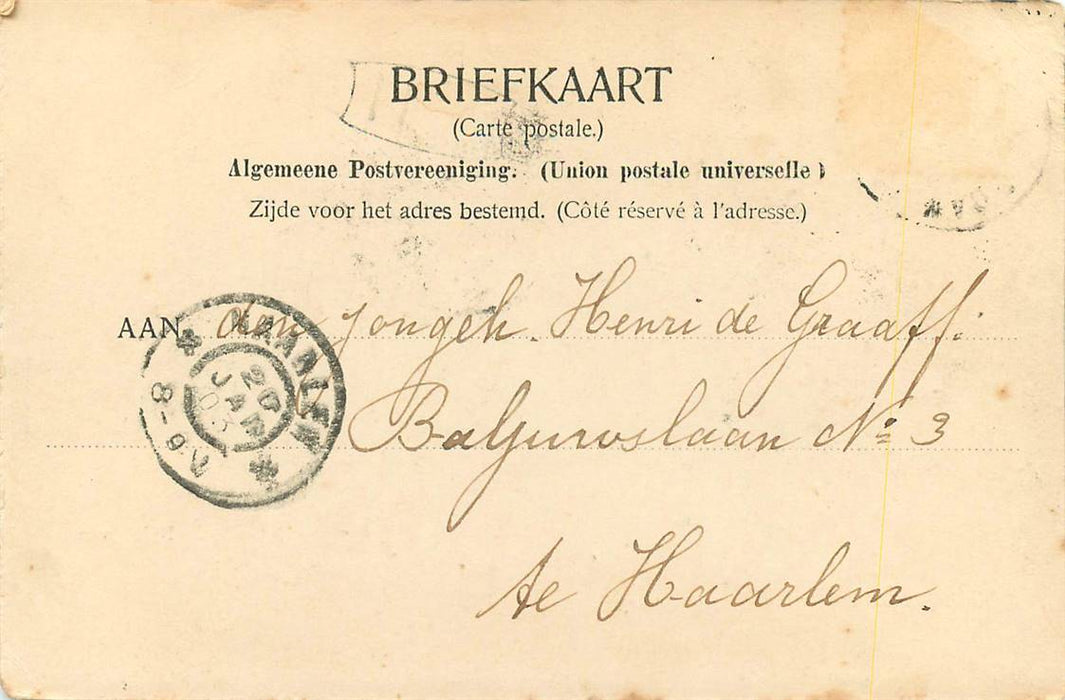 BRIEFKAART
(Carte postale.)
Algemeene Postvereeniging. (Union postale universelle)
Zijde voor het adres bestemd. (Côté réservé à l'adresse.)
AAN den jongeh. Henri de Graaff.
Baljuwslaan No 3
te Haarlem.
HAARLEM
20
JAN
8-9V